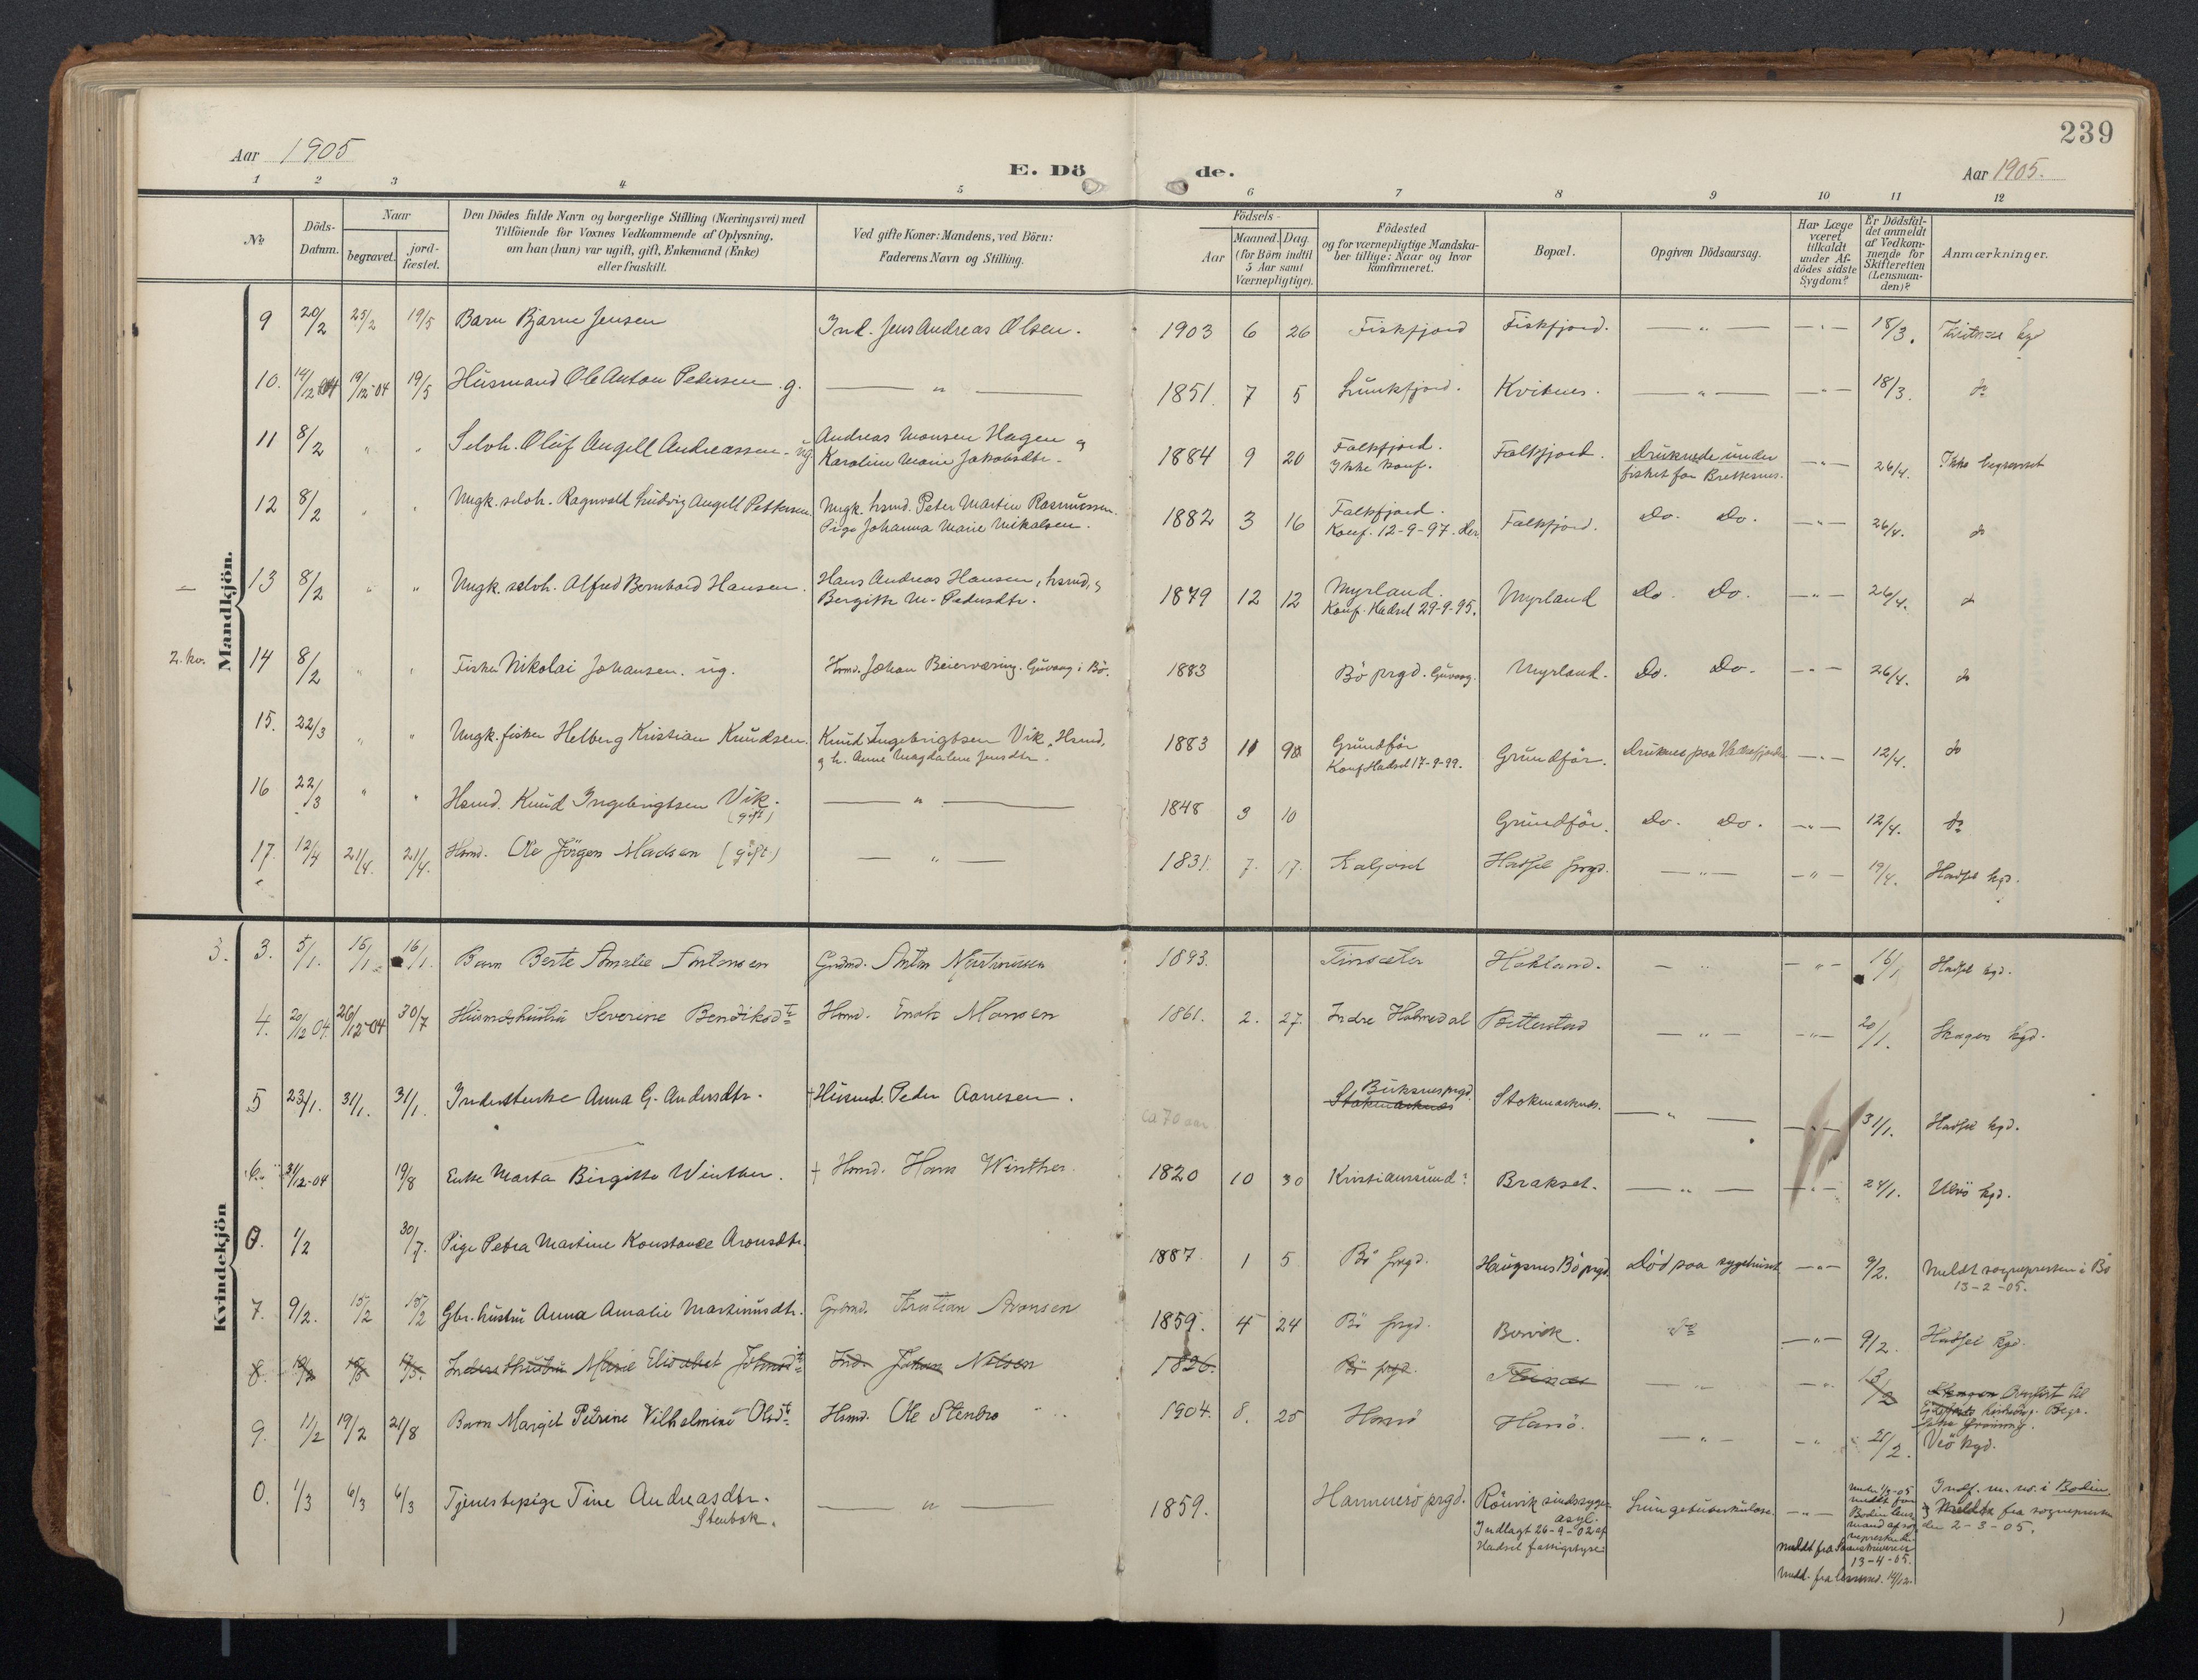 239
Aar 1905
E. Döde.
Aar 1905.
1 2 3 4 5 6 7 8 9 10 11 12
No
Döds-Datum.
Naar
begravet.
jord-fæstet.
Den Dödes fulde Navn og borgerlige Stilling (Næringsvei) med
Tilföiende for Voxnes Vedkommende af Oplysning,
om han (hun) var ugift, gift, Enkemand (Enke)
eller fraskilt.
Ved gifte Koner: Mandens, ved Börn:
Faderens Navn og Stilling.
Födsels-
Aar
Maaned. Dag
(for Börn indtil
5 Aar samt
Værnepligtige).
Födested
og for værnepligtige Mandsku-
ber tillige: Naar og hvor
konfirmeret.
Bopæl.
Opgiven Dödsaarsag.
Har Læge
været
tilkaldt
under Af-
dödes sidste
Sygdom?
Er Dödsfal-
det anmeldt
af Vedkom-
mende for
Skifteretten
(Lensman-
den)?
Anmærkninger.
Mandkjön.
9 20/2 25/2 19/5 Barn Bjarne Jensen Ind. Jens Andreas Olsen. 1903 6 26 Fiskfjord Fiskfjord. — " — — " — 18/3. kgd
10. 14/12 04 19/12-04 19/5 Husmand Ole Anton Pedersen. g. — " — 1851. 7 5 Lunkfjord. Kvitnes. — " — — " — 18/3. do
11 8/2 " " Selvh. Oluf Angell Andreassen - ug. Andreas Monsen Hagen og
Karoline Marie Jakobsdtr. 1884 9 20 Falkfjord.
Ikke konf. Falkfjord. Druknede under
fisket for Brettesnes. — " — 26/4. Ikke begravet
12 8/2 " " Ungk. selvh. Ragnvald Ludvig Angell Pettersen. Ungk. hsmd. Peter Martin Rasmussen.
Pige Johanna Marie Mikalsen. 1882 3 16 Falkfjord.
Konf. 12-9-97. Her. Falkfjord. Do. Do. — " — 26/4. do
— 13 8/2 " " Ungk. selvh. Alfred Bernhard Hansen. Hans Andreas Hansen, hsmd, og
Bergitte M. Pedersdtr. 1879 12 12 Myrland.
Konf. Hadsel 29-9-95. Myrland Do. Do. — " — 26/4. do
2. kv. 14 8/2 " " Fisker Nikolai Johansen. ug. Hsmd. Johan Beierværing. Guvaag i Bö. 1883 Bö prgd. Guvaag. Myrland. Do. Do. — " — 26/4. do
15. 22/3 " " Ungk. fisker Helberg Kristian Knudsen. Knud Ingebrigtsen Vik, Hsmd,
og h. Anne Magdalene Jensdtr. 1883 11 9 Grundför
Konf Hadsel 17-9-99. Grundför. Druknes paa — " — 12/4. do
16 22/3 " " Hsmd. Knud Ingebrigtsen Vik.
(gift) — " — 1848 3 10 Grundför. Do. Do. — " — 12/4. do
17. 12/4 21/4. 21/4. Hsmd. Ole Jörgen Madsen (gift.) — " — 1831. 7. 17. Kaljord Hadsel prgd. — " — — " — 19/4. Hadsel kgd.
Kvindekjön
3. 3. 5/1. 15/1 16/1. Barn Berte Amalie Antonsen Grdmd. Anton Martinussen 1893. Tinsæter Hokland. — " — " — 16/1 Hadsel kgd.
4. 20/12 04. 26/12-04 30/7 Husmdshustru Severine Bendiksdtr Hsmd. Enok Monsen 1861. 2. 27. Indre Holmedal Bitterstad — " — — " — 20/1. Skagen kgd.
5 23/1. 31/1. 31/1. Inderstenke Anna G. Andersdtr. + Husmd. Peder Aanesen. ca 70 aar. Buksnes prgd.
Stokmarknæs Stokmarknes. — " — — " — 31/1. Hadsel kgd.
6. 31/12-04 19/8 Enke Marta Birgitte Winther. + Hsmd. Hans Winther. 1820 10 30 Kristianssund? Brakset. — " — — " — 24/1. Ulvö kgd.
0. 1/2 30/7. Pige Petra Martine Konstance Aronsdtr. 1887. 1 5 Bö prgd. Haugsnes Bö prgd. Död paa sygehuset — " — 9/2. Meldt sognepresten i Bö
13-2-05.
7. 9/2. 15/2 15/2 Gbr. hustru Anna Amalie Martinusdtr. Grdmd. Kristian Aronsen 1859. 4 24 Bö prgd. Borvik. do — " — 9/2. Hadsel kgd.
8. 10/2 Inderst hustru Marie Elisabet Johnsdtr Ind. Johan Nilsen 1826. Bö prgd. — " — — " 13/2 Skagen
9. 11/2 19/2 21/8 Barn Margit Petrine Vilhelmine Olsdtr Hsmd. Ole Stenbro 1904. 8. 25 Hanö Hanö. — " — — " 21/2. Veö kgd.
0. 1/3 6/3 6/3 Tjenestepige Tine Andreasdtr.
Stenbak. — " — 1859. Hammerö prgd. Rönvik sindssyge-
asyl.
Indlagt 26-9-02 af
Hadsel fattigstyre. Lungetuberkulose. — " —
meldt fra
13-4-05.
Indf. m. no. i Bodin
fra sognepresten
den 2-3-05.